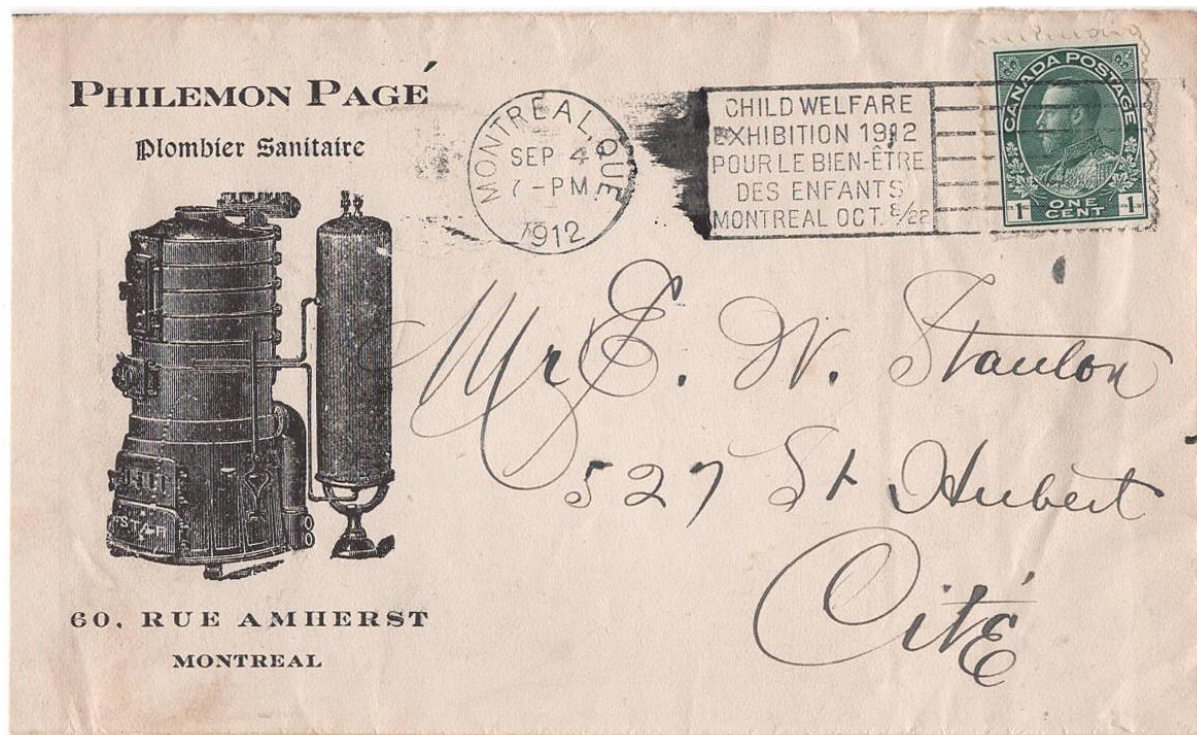 PHILEMON PAGÉ
Plombier Sanitaire
STAR
60, RUE AMHERST
MONTREAL
MONTREAL, QUE.
SEP 4
7-PM
1912
CHILD WELFARE
EXHIBITION 1912
POUR LE BIEN-ÊTRE
DES ENFANTS
MONTREAL OCT. 8/22
CANADA POSTAGE
1 ONE CENT 1
Mr E. W. Stanton
527 St Hubert
Cité